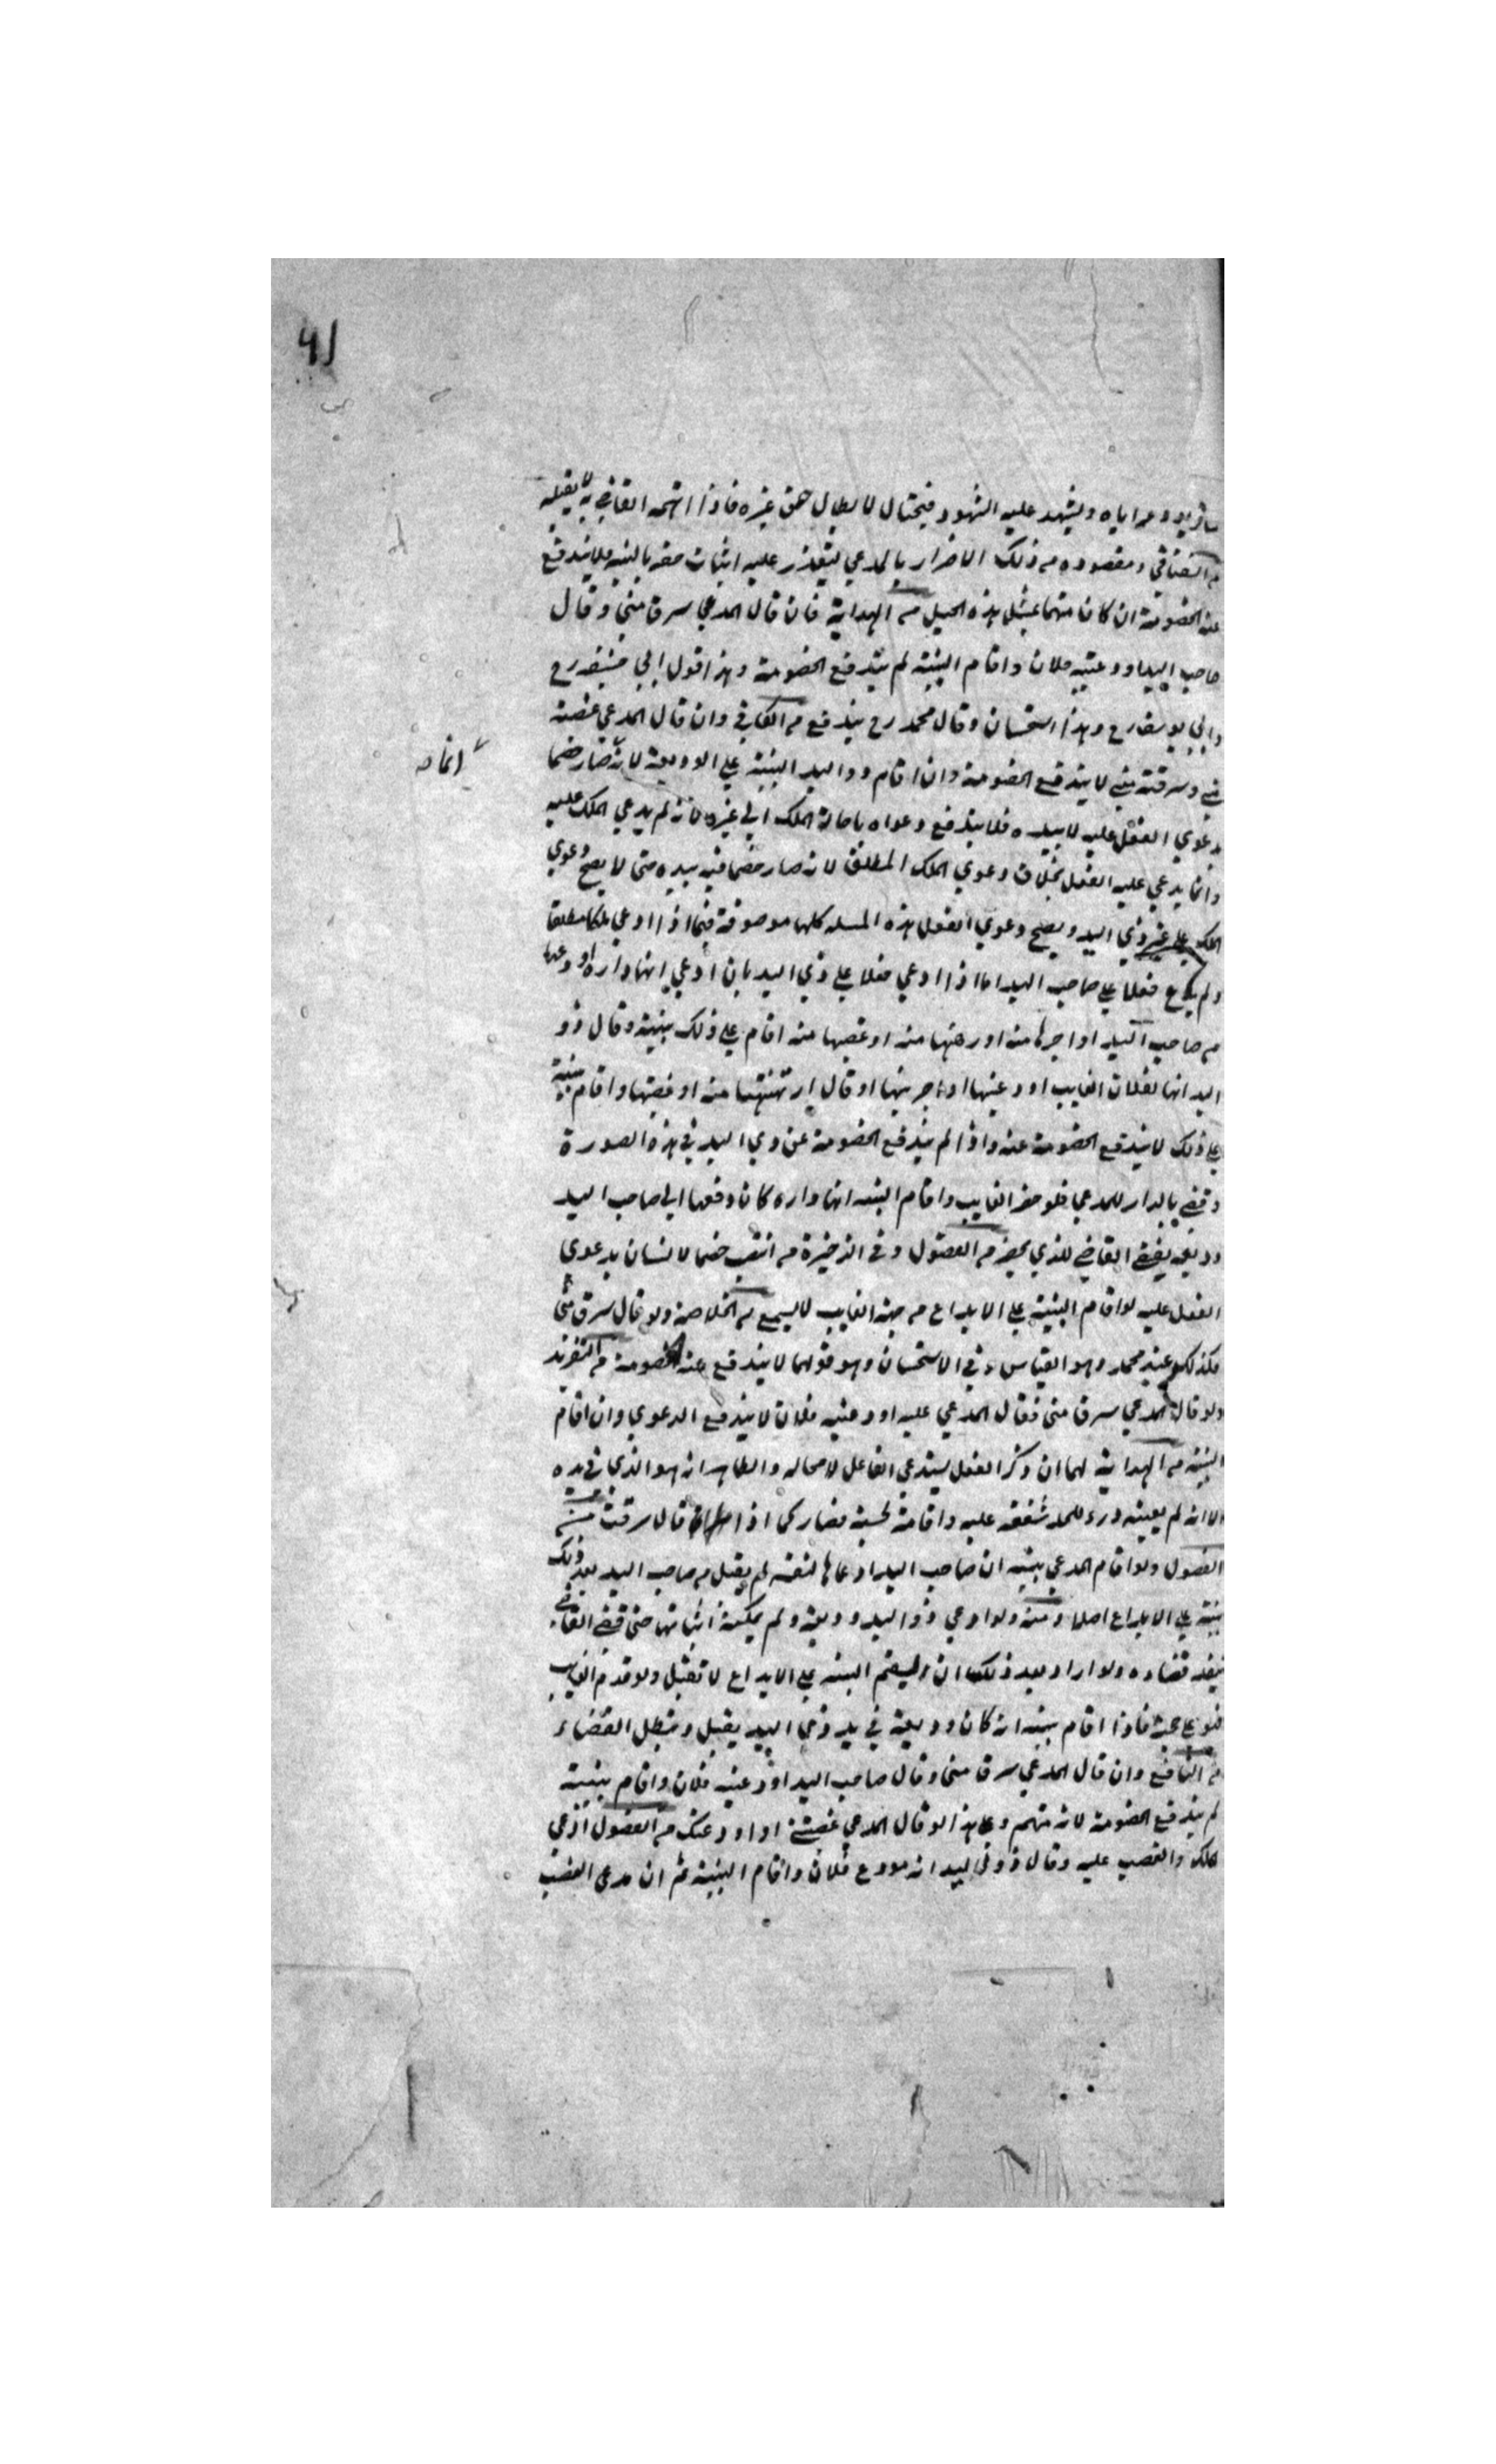 ويشهد عليه الشهود فيحتال لابطال حق غيره فاذا اتهمه القاضي به لا يقبله
ومقصوده من ذلك الاضرار بالمدعي ليتعذر عليه اثبات حقه بالبينة فلا يندفع
عنه الخصومة ان كان متهما بمثل هذه الحيل من الهداية فان قال المدعي سرق مني وقال
صاحب اليد اودعنيه فلان واقام البينة لم يندفع الخصومة وهذا قول ابي حنيفه رح
وابي يوسف رح وهذا استحسان وقال محمد رح يندفع من الكافي وان قال المدعي غصبته
مني وسرقته مني لا يندفع الخصومة وان اقام ذو اليد البينة علي الوديعة لانه صار خصما
بدعوي الفعل عليه لا بيده فلا يندفع دعواه باحالة الملك الي غيره لانه لم يدعي الملك عليه
وانما يدعي عليه الفعل بخلاف دعوي الملك المطلق لانه صار خصما فيه بيده حتى لا يصح دعوي
الملك علي غير ذي اليد ويصح دعوي الفعل هذه المسله كلها موصوفة فيما اذا ادعي ملكا مطلقا
ولم يدع فعلا علي صاحب اليد اما اذا ادعي فعلا علي ذي اليد بان ادعي انها داره اودعها
من صاحب اليد او اجرها منه او رهنها منه او غصبها منه اقام علي ذلك بينة وقال ذو
اليد انها لفلان الغايب اودعنيها او اجرنيها او قال ارتهنتها منه او غصبتها واقام بينة
علي ذلك لا يندفع الخصومة عنه واذا لم يندفع الخصومة عن ذي اليد في هذه الصورة
وقضي بالدار للمدعي فلو حضر الغايب واقام البينه انها داره كان دفعها الي صاحب اليد
وديعه يقضي القاضي للذي يحضر من الفصول وفي الذخيرة من انتصب خصما لانسان بدعوي
الفعل عليه لو اقام البينة علي الايداع من جهة الغايب لا يسمع من الخلاصة ولو قال سرق مني
فكذلك عند محمد وهو القياس وفي الاستحسان وهو قولهما لا يندفع عنه الخصومة من التفريد
ولو قال المدعي سرق مني فقال المدعي عليه اودعنيه فلان لا يندفع الدعوي وان اقام
البينة من الهداية لهما ان ذكر الفعل يستدعي الفاعل لا محاله والظاهر انه هو الذي في يده
الا انه لم يعينه درء للحد شفقة عليه واقامة لحسبة فصار كما اذا قال سرقت منه
الفصول ولو اقام المدعي بينة ان صاحب اليد ادعاها لنفسه لم يقبل من صاحب اليد بعد ذلك
بينة علي الايداع اصلا ومنه ولو ادعي ذو اليد وديعة ولم يمكنه اثباتها حتى قضي القاضي
ينفذ قضاءه ولو اراد بعد ذلك ان يقيم البينه علي الايداع لا تقبل ولو قدم الغايب
فهو علي حجته فاذا اقام بينة انه كان وديعة في يد ذي اليد يقبل ويبطل القضاء
من النافع وان قال المدعي سرق مني وقال صاحب اليد اودعنيه فلان واقام بينة
لم يندفع الخصومة لانه متهم وعلي هذا لو قال المدعي غصبته او اودعتك من الفصول ادعي
الملك والغصب عليه وقال ذو اليد انه مودع فلان واقام البينة ثم ان مدعي الغصب